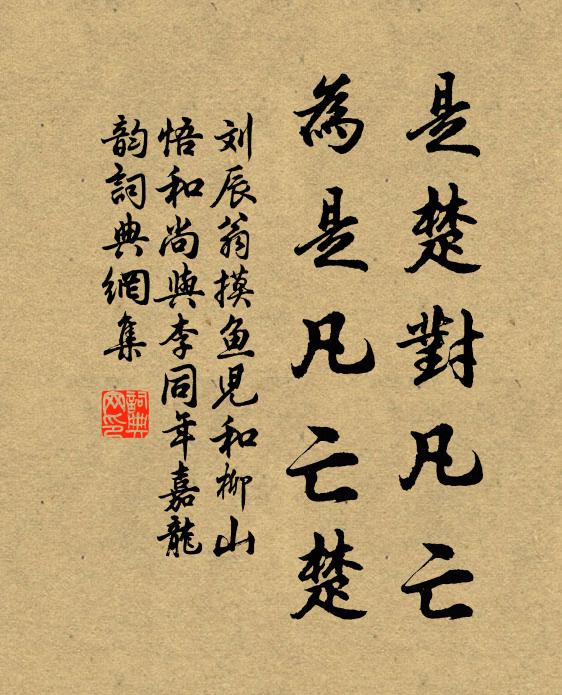 是楚對凡亡
為是凡亡楚
刘辰翁摸鱼児和柳山
悟和尚與李同年嘉龍
韵詞典網集
詞典
网印